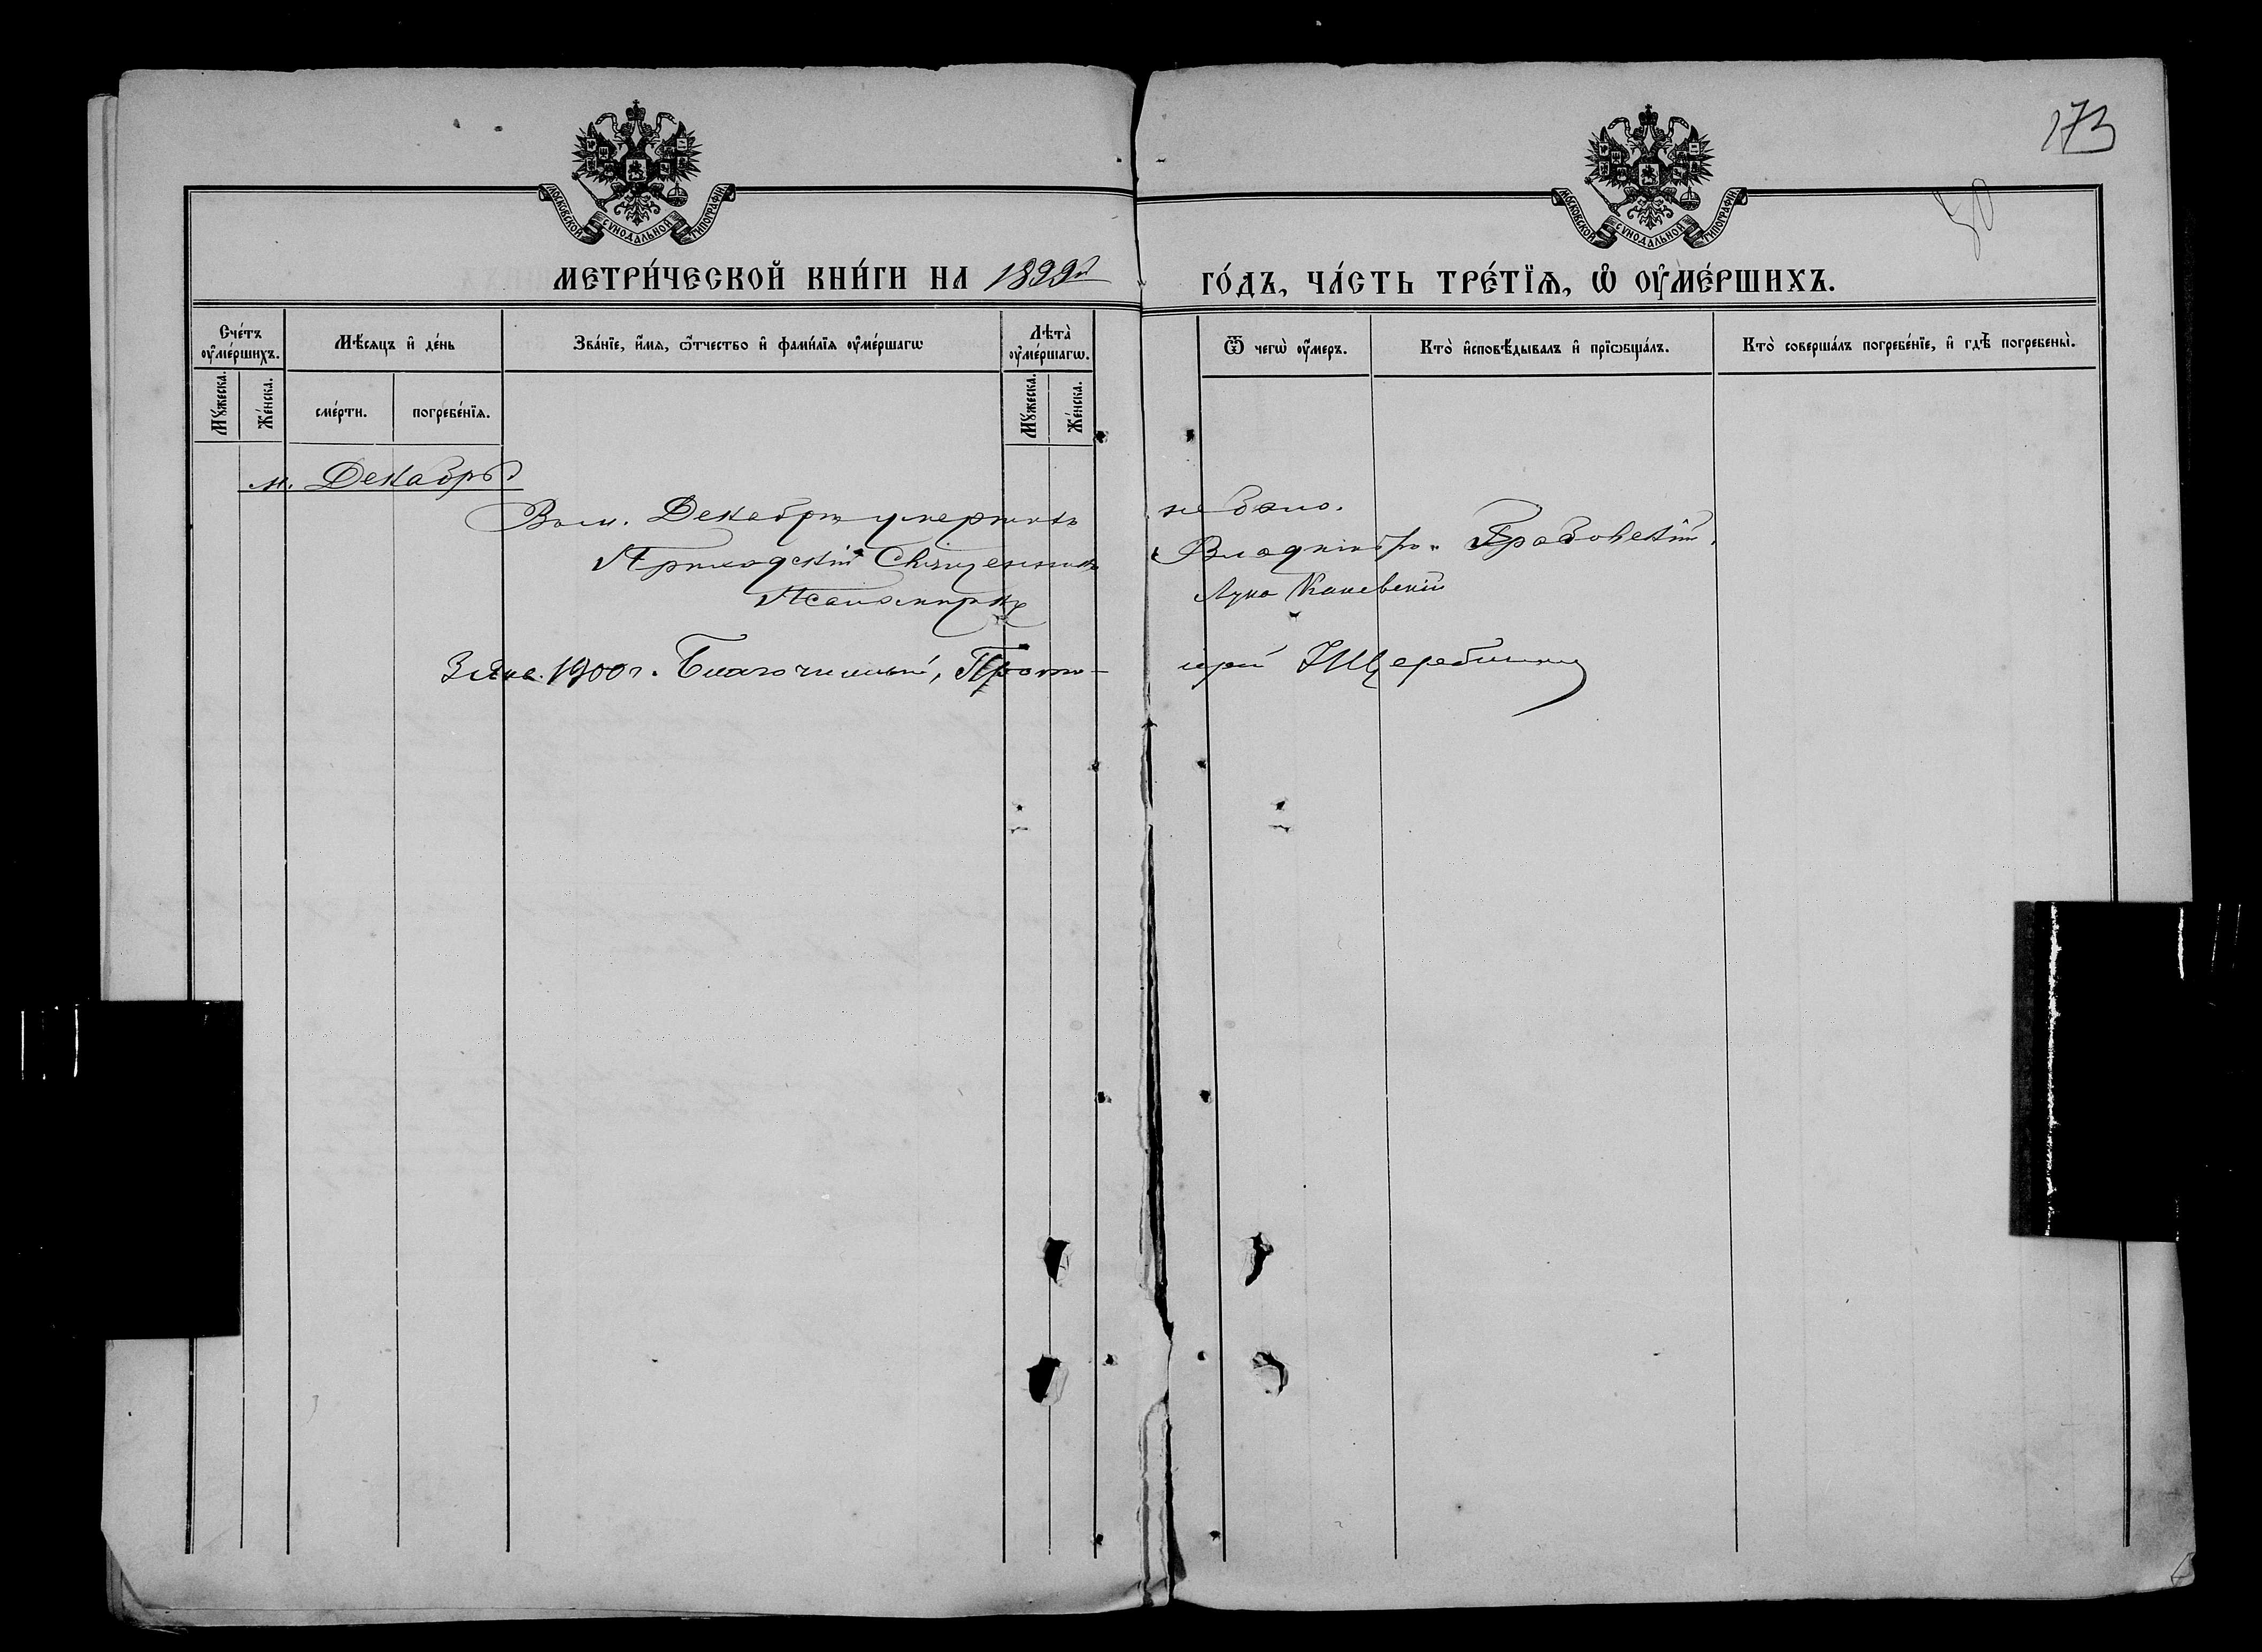 173
50
МОСКОВСКОЙ СУНОДАЛЬНОЙ ТИПОГРАФІИ
МОСКОВСКОЙ СУНОДАЛЬНОЙ ТИПОГРАФІИ
МЕТРИ́ЧЕСКОЙ КНИ́ГИ НА 1899й ГО́ДЪ, ЧА́СТЬ ТРЕ́ТЇѦ, Ѡ҆ ОУ҆МЕ́РШИХЪ.
Сче́тъ оу҆ме́ршихъ.
Мѣ́сяцъ и҆ де́нь
Зва́нїе, и҆́мѧ, ѻ҆́тчество и҆ фами́лїѧ оу҆ме́ршагѡ
Лѣта̀ оу҆ме́ршагѡ.
Ѿ чегѡ̀ оу҆́меръ.
Кто̀ и҆сповѣ́дывалъ и҆ прїѡбща́лъ.
Кто̀ соверша́лъ погребе́нїе, и҆ гдѣ̀ погребены̀.
Мꙋ́жеска.
Же́нска.
сме́рти.
погребе́нїѧ.
Мꙋ́жеска.
Же́нска.
м. Декабрь
В ъ м. Декабрѣ умершихъ не было.
Приходскій Священникъ Владиміръ Грабовскій.
Псаломщикъ Лука Каневскій
3 Янв. 1900 г. Благочинный, Прото-
іерей Щербина